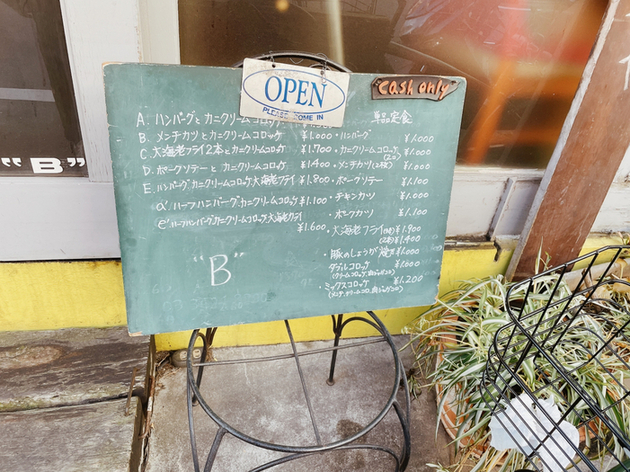 OPEN
PLEASE COME IN
Cash only
A. ハンバーグとカニクリームコロッケ
B. メンチカツとカニクリームコロッケ ¥1.000
C. 大海老フライ2本とカニクリームコロッケ ¥1.700
D. ポークソテーと カニクリームコロッケ ¥1.400
E. ハンバーグ カニクリームコロッケ 大海老フライ ¥1.800
ハーフハンバーグ・カニクリームコロッケ ¥1.100
e' ハーフハンバーグ カニクリームコロッケ 大海老フライ
¥1.600
"B"
単品定食
・ハンバーグ ¥1.000
・カニクリームコロッケ ¥1.000
・メンチカツ ¥1.000
・ポークソテー ¥1.100
・チキンカツ ¥1.000
・ポークカツ ¥1.100
・大海老フライ ¥1.900
¥1.400
・豚のしょうが焼 ¥1.000
ダブルコロッケ ¥1.000
・ミックスコロッケ ¥1.200
"B"